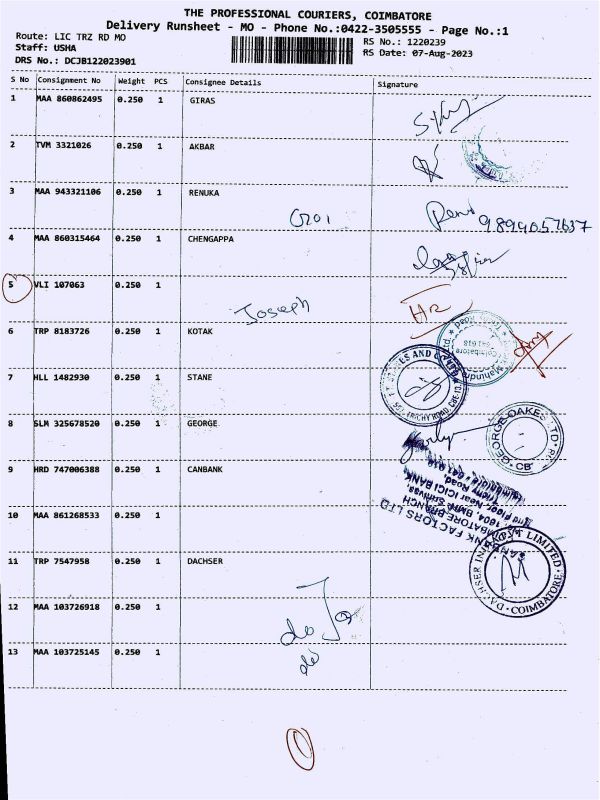 THE PROFESSIONAL COURIERS, COIMBATORE
Delivery Runsheet - MO - Phone No.:0422-3505555 - Page No.:1
Route: LIC TRZ RD MO
Staff: USHA
DRS No.: DCJB122023901
RS No.: 1220239
RS Date: 07-Aug-2023
S No Consignment No Weight PCS Consignee Details Signature
1 MAA 860862495 0.250 1 GIRAS
2 TVM 3321026 0.250 1 AKBAR
3 MAA 943321106 0.250 1 RENUKA
9899057637
4 MAA 860315464 0.250 1 CHENGAPPA
5 VLI 107063 0.250 1
Joseph
6 TRP 8183726 0.250 1 KOTAK
7 HLL 1482930 0.250 1 STANE
8 SLM 325678520 0.250 1 GEORGE
GEORGE OAKES LTD
9 HRD 747006388 0.250 1 CANBANK
10 MAA 861268533 0.250 1
11 TRP 7547958 0.250 1 DACHSER
COIMBATORE
12 MAA 103726918 0.250 1
do
13 MAA 103725145 0.250 1
do